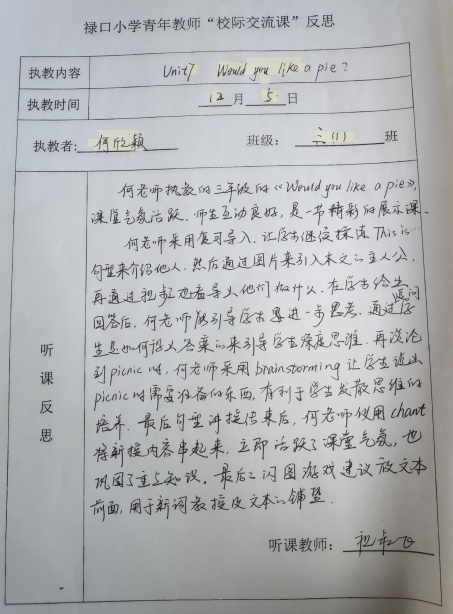 禄口小学青年教师“校际交流课”反思
执教内容 Unit7 Would you like a pie?
执教时间 12月5日
执教者:何欣颖 班级:三(1)班
听课反思
何老师执教的三年级的《Would you like a pie》,
课堂气氛活跃,师生互动良好,是一节精彩的展示课。
何老师采用复习导入,让学生继续操练This is…
句型来介绍他人,然后通过图片来引入本文的主人公,
再通过视频观看导入他们做什么,在学生给出
回答后,何老师能引导学生要进一步思考,通过提问学
生是如何得入答案的来引导学生深度思维。再谈论
到picnic时,何老师采用brainstorming让学生说出
picnic时需要准备的东西,有利于学生发散思维的
培养。最后句型讲授结束后,何老师使用chant
将新授内容串起来,立即活跃了课堂气氛,也
巩固了重点知识。最后闪图游戏建议放文本
前面,用于新词教授及文本的铺垫.
听课教师: